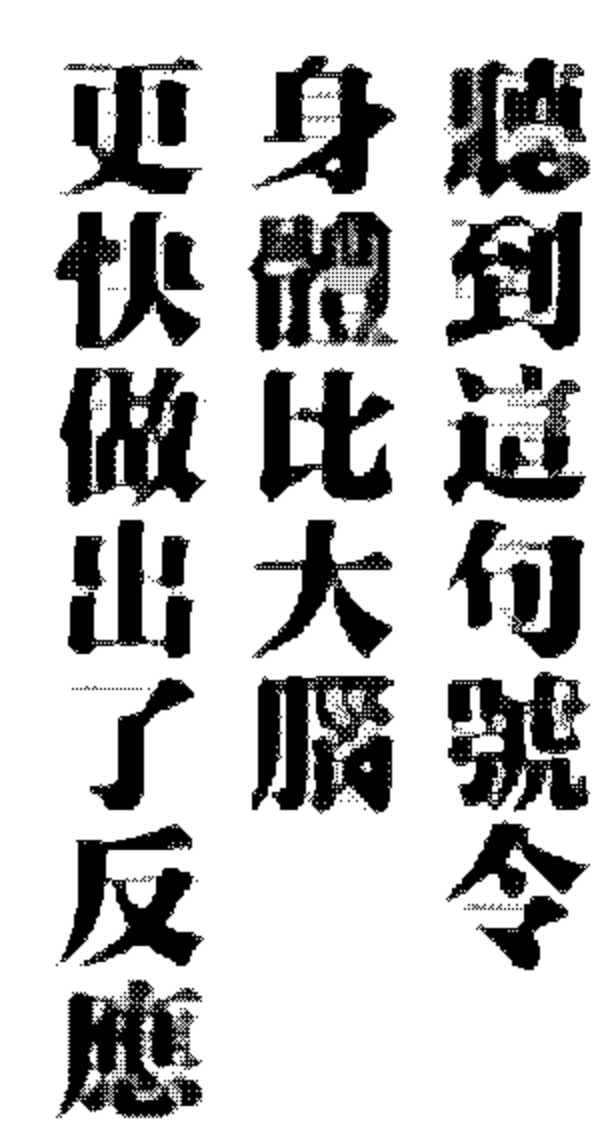 聽到這句號令
身體比大腦
更快做出了反應